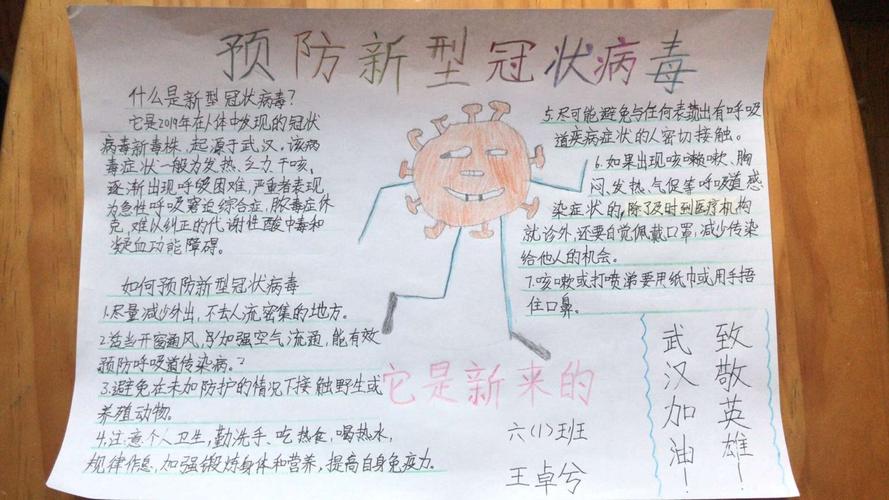 预防新型冠状病毒
什么是新型冠状病毒?
它是2019年在人体中发现的冠状
病毒新毒株,起源于武汉,该病
毒症状一般为发热、乏力、干咳、
逐渐出现呼吸困难,严重者表现
为急性呼吸窘迫综合症、脓毒症休
克,难以纠正的代谢性酸中毒和
凝血功能障碍。
如何预防新型冠状病毒
1.尽量减少外出,不去人流密集的地方。
2.适当开窗通风,可加强空气流通,能有效
预防呼吸道传染病。
3.避免在未加防护的情况下接触野生或
养殖动物。
4.注意个人卫生,勤洗手、吃热食,喝热水,
规律作息,加强锻炼身体和营养,提高自身免疫力。
5.尽可能避免与任何表露出有呼吸
道疾病症状的人密切接触。
6.如果出现咳嗽、胸
闷、发热、气促等呼吸道感
染症状的,除了及时到医疗机构
就诊外,还要自觉佩戴口罩,减少传染
给他人的机会。
7.咳嗽或打喷涕要用纸巾或用手捂
住口鼻。
它是新来的
六(1)班
王卓兮
致敬英雄!
武汉加油!